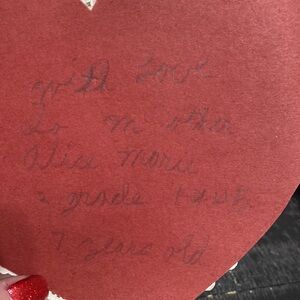 with Love
to mother
Alice Marie
2 grade
7 years old